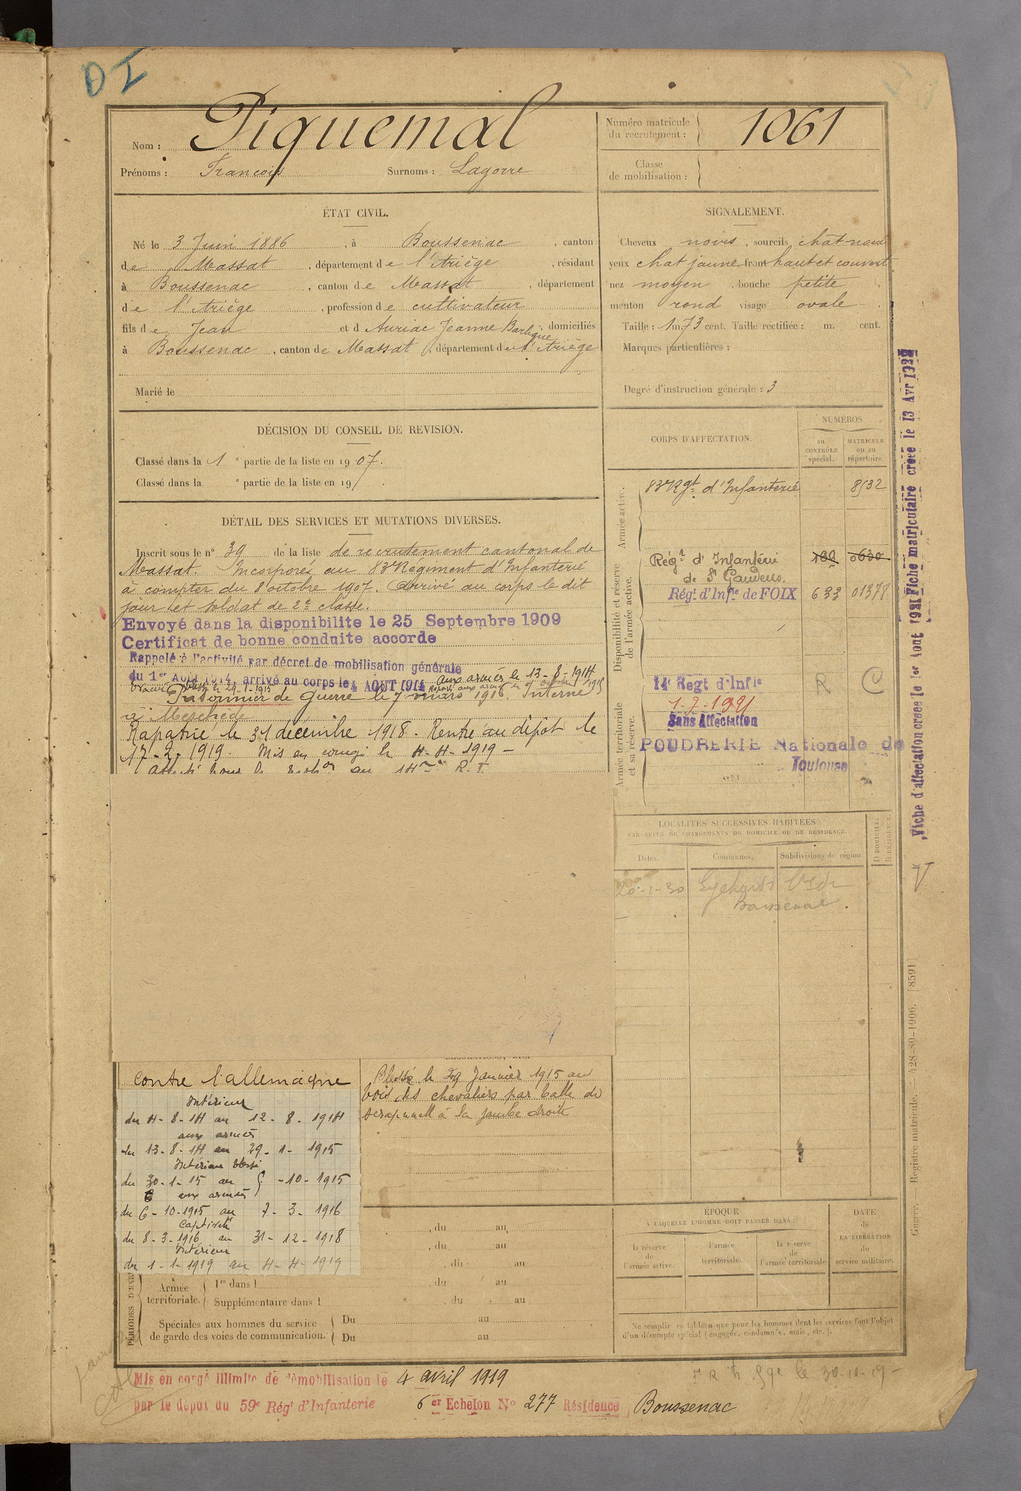 D I
Nom : Piquemal
Prénoms : François Surnoms : Lagorre
Numéro matricule du recrutement : 1061
Classe de mobilisation :
ÉTAT CIVIL.
Né le 3 Juin 1886, à Boussenac, canton
de Massat, département de l'Ariège, résidant
à Boussenac, canton de Massat, département
de l'Ariège, profession de cultivateur
fils de Jean et d Auriac Jeanne domiciliés
à Boussenac, canton de Massat, département de l'Ariège
Marié le
SIGNALEMENT.
Cheveux noirs, sourcils chat noirs
yeux chat jaune front haut et couvert
nez moyen, bouche petite
menton rond visage ovale
Taille : 1 m. 73 cent. Taille rectifiée : m. cent.
Marques particulières :
Degré d'instruction générale : 3
DÉCISION DU CONSEIL DE REVISION.
Classé dans la 1e partie de la liste en 1907.
Classé dans la e partie de la liste en 19
DÉTAIL DES SERVICES ET MUTATIONS DIVERSES.
Inscrit sous le n° 39 de la liste de recrutement cantonal de
Massat. Incorporé au 83e Régiment d'Infanterie
à compter du 8 octobre 1907. Arrivé au corps le dit
jour et soldat de 2e classe.
Envoyé dans la disponibilite le 25 Septembre 1909
Certificat de bonne conduite accorde
Rappelé à l'activité par décret de mobilisation générale
du 1er Août 1914, arrivé au corps le 4 AOUT 1914 aux armées le 13-8-1914
Prisonnier de Guerre le 7 mars 1916. Interné
à Meschede
Rapatrié le 31 décembre 1918. Rentré au dépôt le
17-2-1919. Mis en congé le 4-4-1919 -
CORPS D'AFFECTATION.
NUMÉROS
au CONTRÔLE spécial.
MATRICULE ou au répertoire.
Armée active.
83e Rgt d'Infanterie 8532
Disponibilité et réserve de l'armée active.
Régt d'Infanterie
de St Gaudens.
Régt d'Infie de FOIX 633 01378
Armée territoriale et sa réserve.
14e Regt d'Infie
1-7-1921
Sans Affectation
R C
POUDRERIE Nationale de
Toulouse
LOCALITÉS SUCCESSIVES HABITÉES
PAR SUITE DE CHANGEMENTS DE DOMICILE OU DE RÉSIDENCE.
Dates. Communes. Subdivisions de région.
20-1-30
Boussenac.
contre l'allemagne
Intérieur
du 4-8-14 au 12-8-1914
aux armées
du 13-8-14 au 29-1-1915
Intérieur blessé
du 30-1-15 au 5-10-1915
aux armées
du 6-10-1915 au 7-3-1916
Captivité
du 8-3-1916 au 31-12-1918
Intérieur
du 1-1-1919 au 4-4-1919
Blessé le 29 Janvier 1915 au
bois des chevaliers par balle de
scrapnell à la jambe droite
, du au
, du au
, du au
du au
. du au
Armée territoriale. 1re dans l
Supplémentaire dans l
Spéciales aux hommes du service
de garde des voies de communication.
Du au
Du au
ÉPOQUE
À LAQUELLE L'HOMME DOIT PASSER DANS :
la réserve de l'armée active
l'armée territoriale.
la réserve de l'armée territoriale
DATE de LA LIBÉRATION du service militaire.
Ne remplir ce tableau que pour les hommes dont les services font l'objet
d'un décompte spécial (engagés, condamnés, omis, etc.)
Mis en congé illimité de démobilisation le 4 avril 1919
par le depot du 59e Régt d'Infanterie 6er Echelon No 277 Résidence Boussenac
Fiche d'affectation créée le 1er Aout 1921 Fiche matriculaire créée le 13 Avr 1928
V
Guerre. Registre matricule. A28-89-1906. [8591]